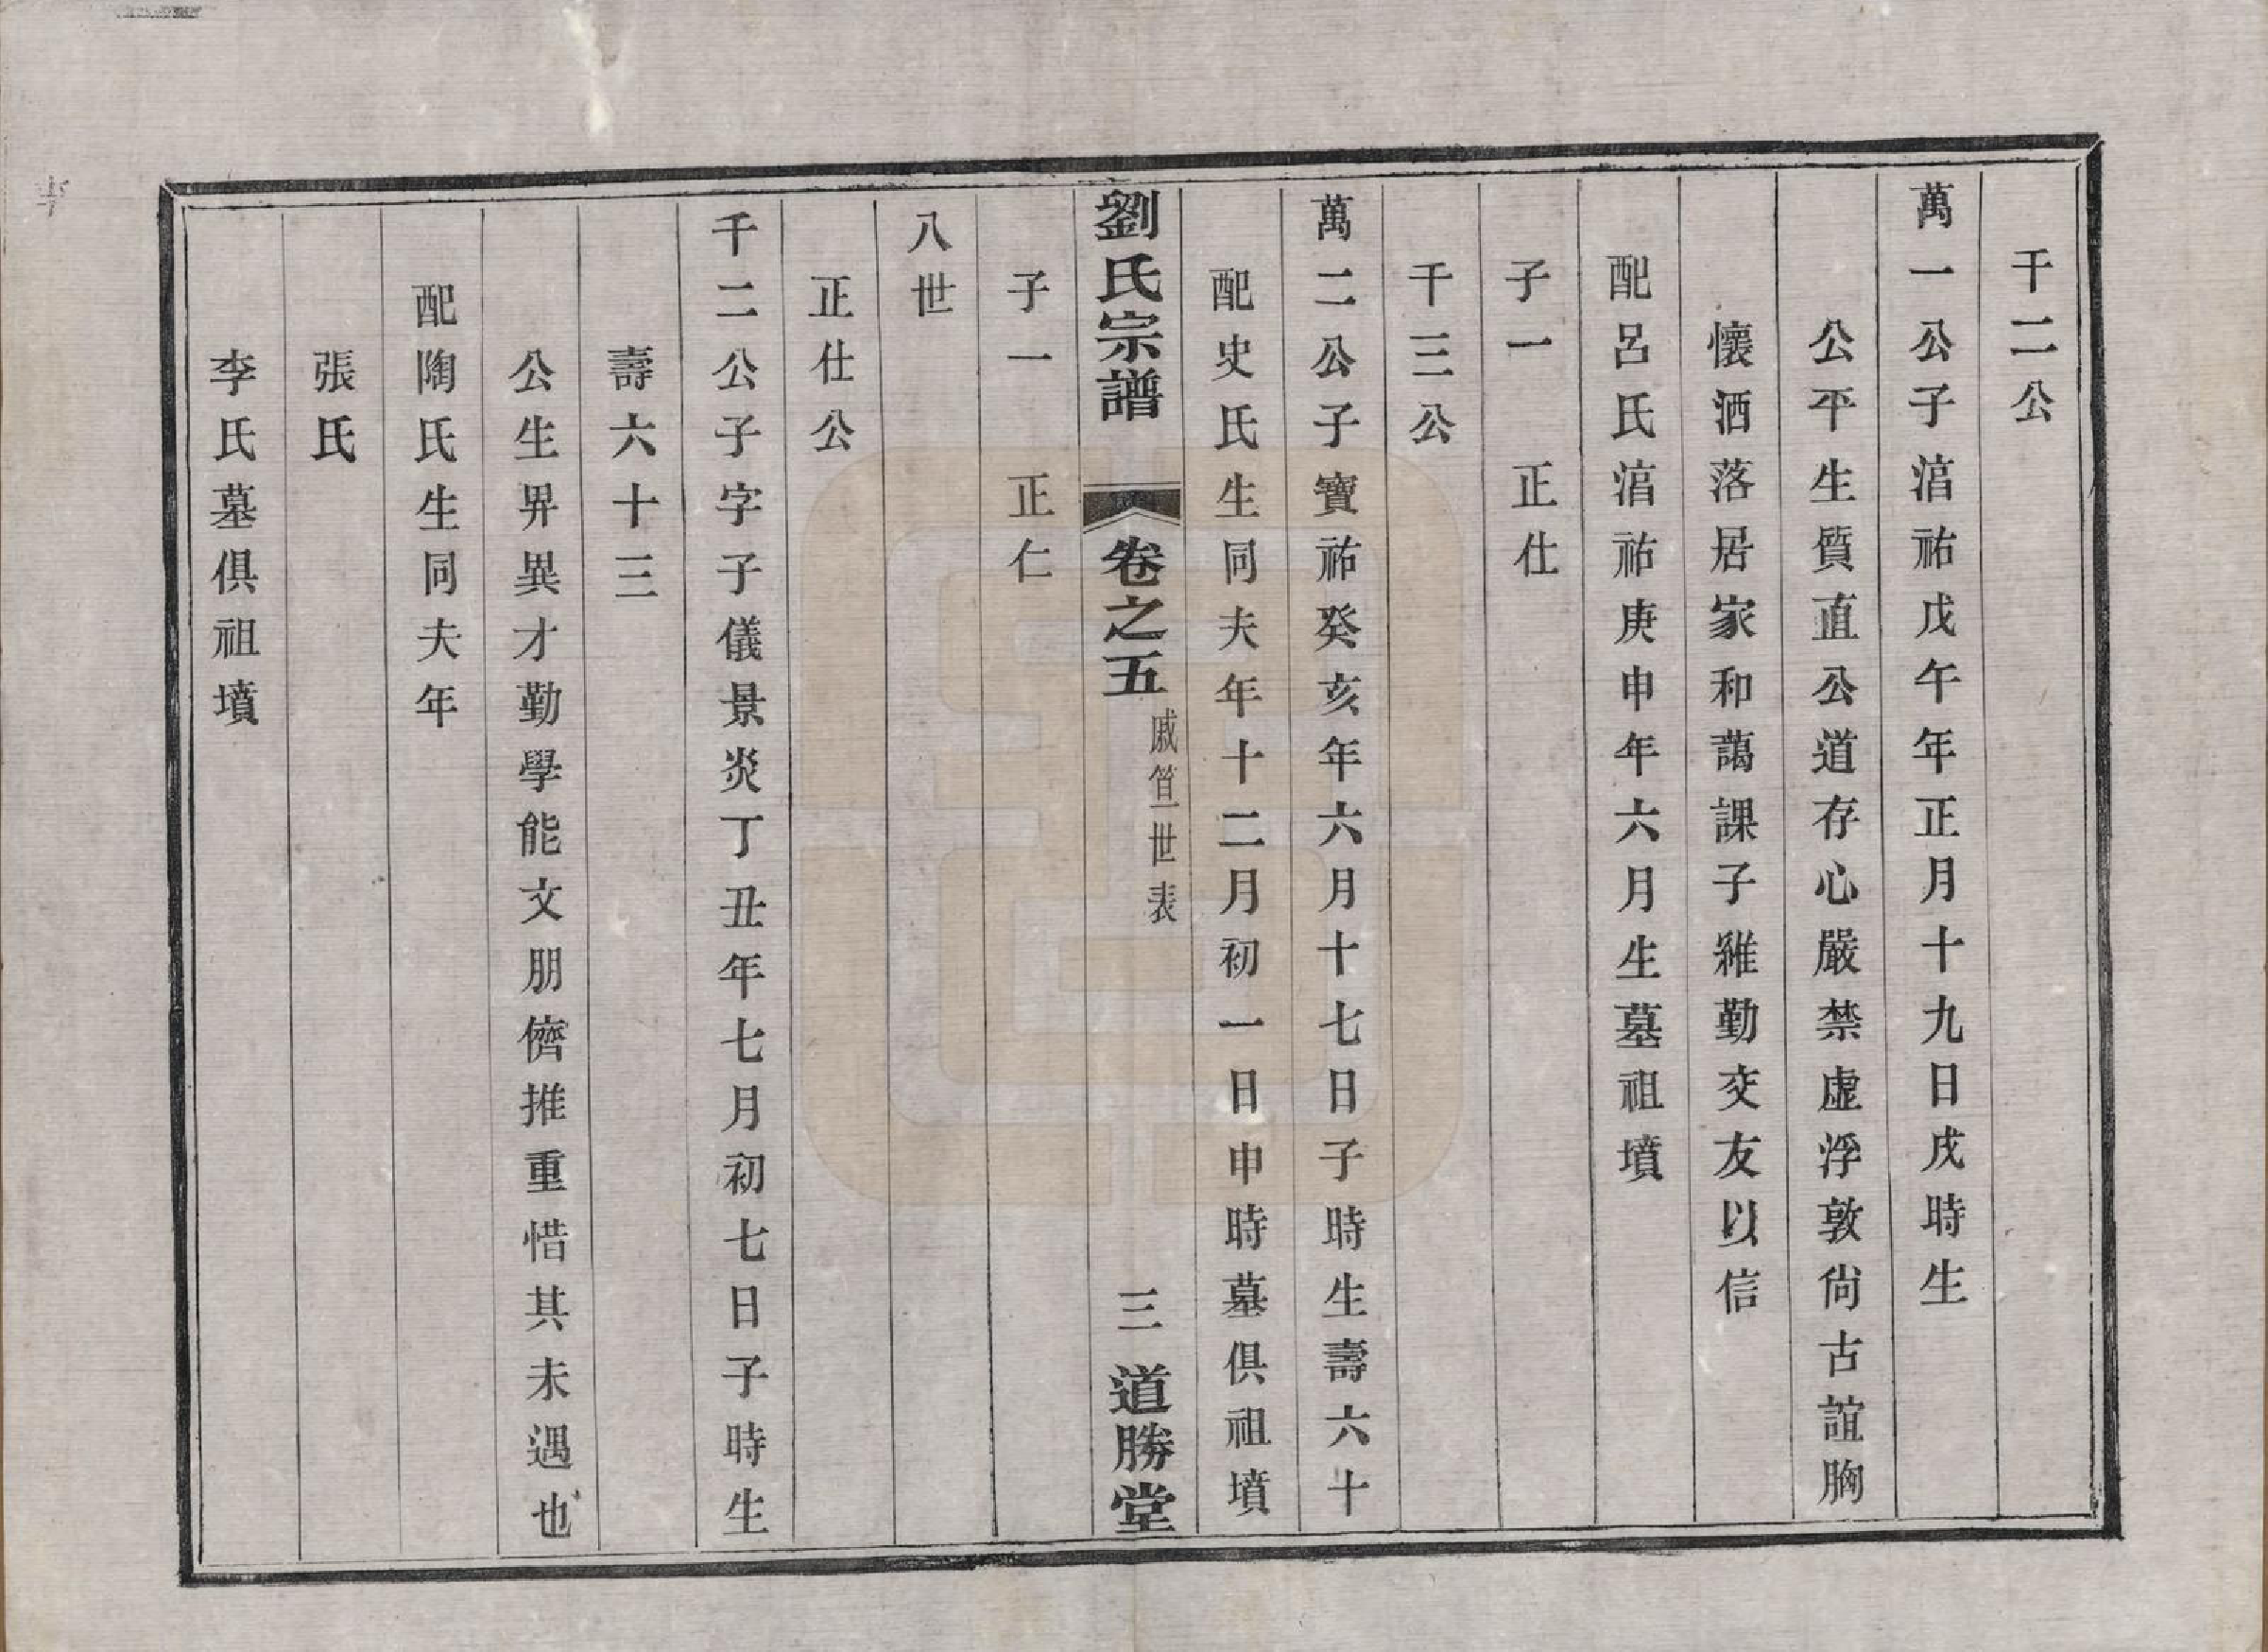 千二公
萬一公子湻祐戊午年正月十九日戌時生
公平生質直公道存心嚴禁虛浮敦尙古誼胸
懷洒落居家和藹課子維勤交友以信
配呂氏湻祐庚申年六月生墓祖墳
子一　正仕
千三公
萬二公子寶祐癸亥年六月十七日子時生壽六十
配史氏生同夫年十二月初一日申時墓俱祖墳
劉氏宗譜　卷之五　戚笪世表　三　道勝堂
子一　正仁
八世
正仕公
千二公子字子儀景炎丁丑年七月初七日子時生
壽六十三
公生畀異才勤學能文朋儕推重惜其未遇也
配陶氏生同夫年
張氏
李氏墓俱祖墳